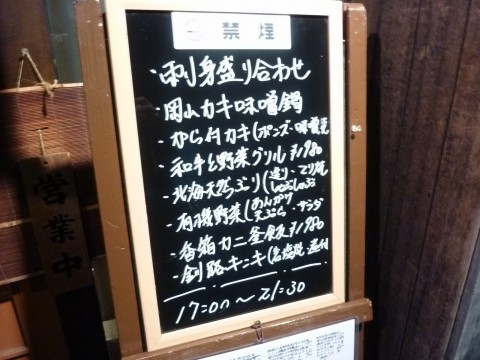 禁煙
・刺身盛り合わせ
・岡山カキ味噌鍋
・から付カキ(ポンズ・味噌焼
・和牛と野菜グリル ¥1980
・北海天然ぶり(造り・てり焼
しゃぶしゃぶ
・有機野菜(あんかけ
天ぷら・サラダ
・香箱カニ釜飯 ¥1980
・釧路キンキ(塩焼・煮付
17:00〜21:30
営業中